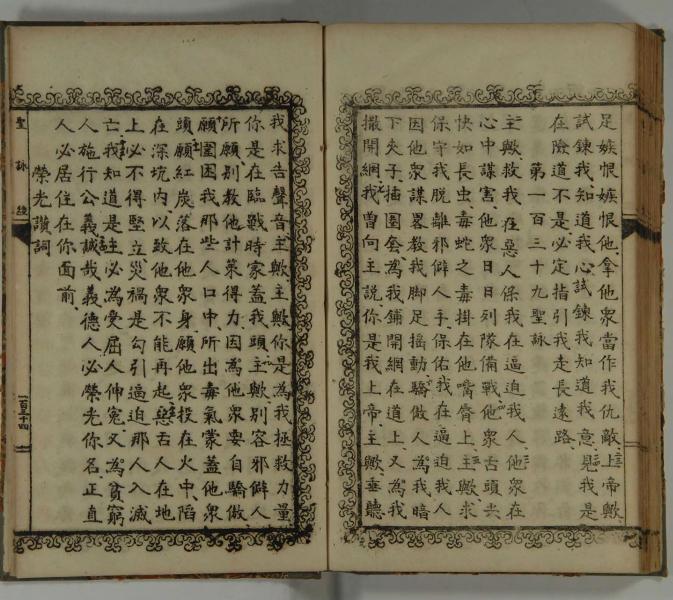 足嫉恨嫉恨他拿他衆當作我仇敵上帝歟
試鍊我知道我心試鍊我知道我意見我是
在險道不是必定指引我走長遠路
第一百三十九聖詠
主歟救我在惡人保我在逼迫我人他衆在
心中謀害他衆日日列隊備戰他衆舌頭尖
快如長虫毒蛇之毒掛在他嘴脣上主歟求
保守我脫離邪僻人手保佑我在逼迫我人
因他衆謀畧教我脚足搖動驕傲人為我暗
下夾子插圈套為我鋪開網在道上又為我
撒開網我曾向主說你是我上帝主歟垂聽
我求告聲音主歟主歟你是為我拯救力量
你是在臨戰時家蓋我頭主歟別容邪僻人
所願別教他計策得力因為他衆要自驕傲
願圍困我那些人口中所出毒氣蒙蓋他衆
頭願紅炭落在他衆身願他衆投在火中陷
在深坑內以致他衆不能再起惡舌人在地
上必不得堅立災禍是勾引逼迫那人入滅
亡我知道是主必為受屈人伸冤又為貧窮
人施行公義誠哉義德人必榮光你名正直
人必居住在你面前
榮光讚詞
聖詠經
一百三十四